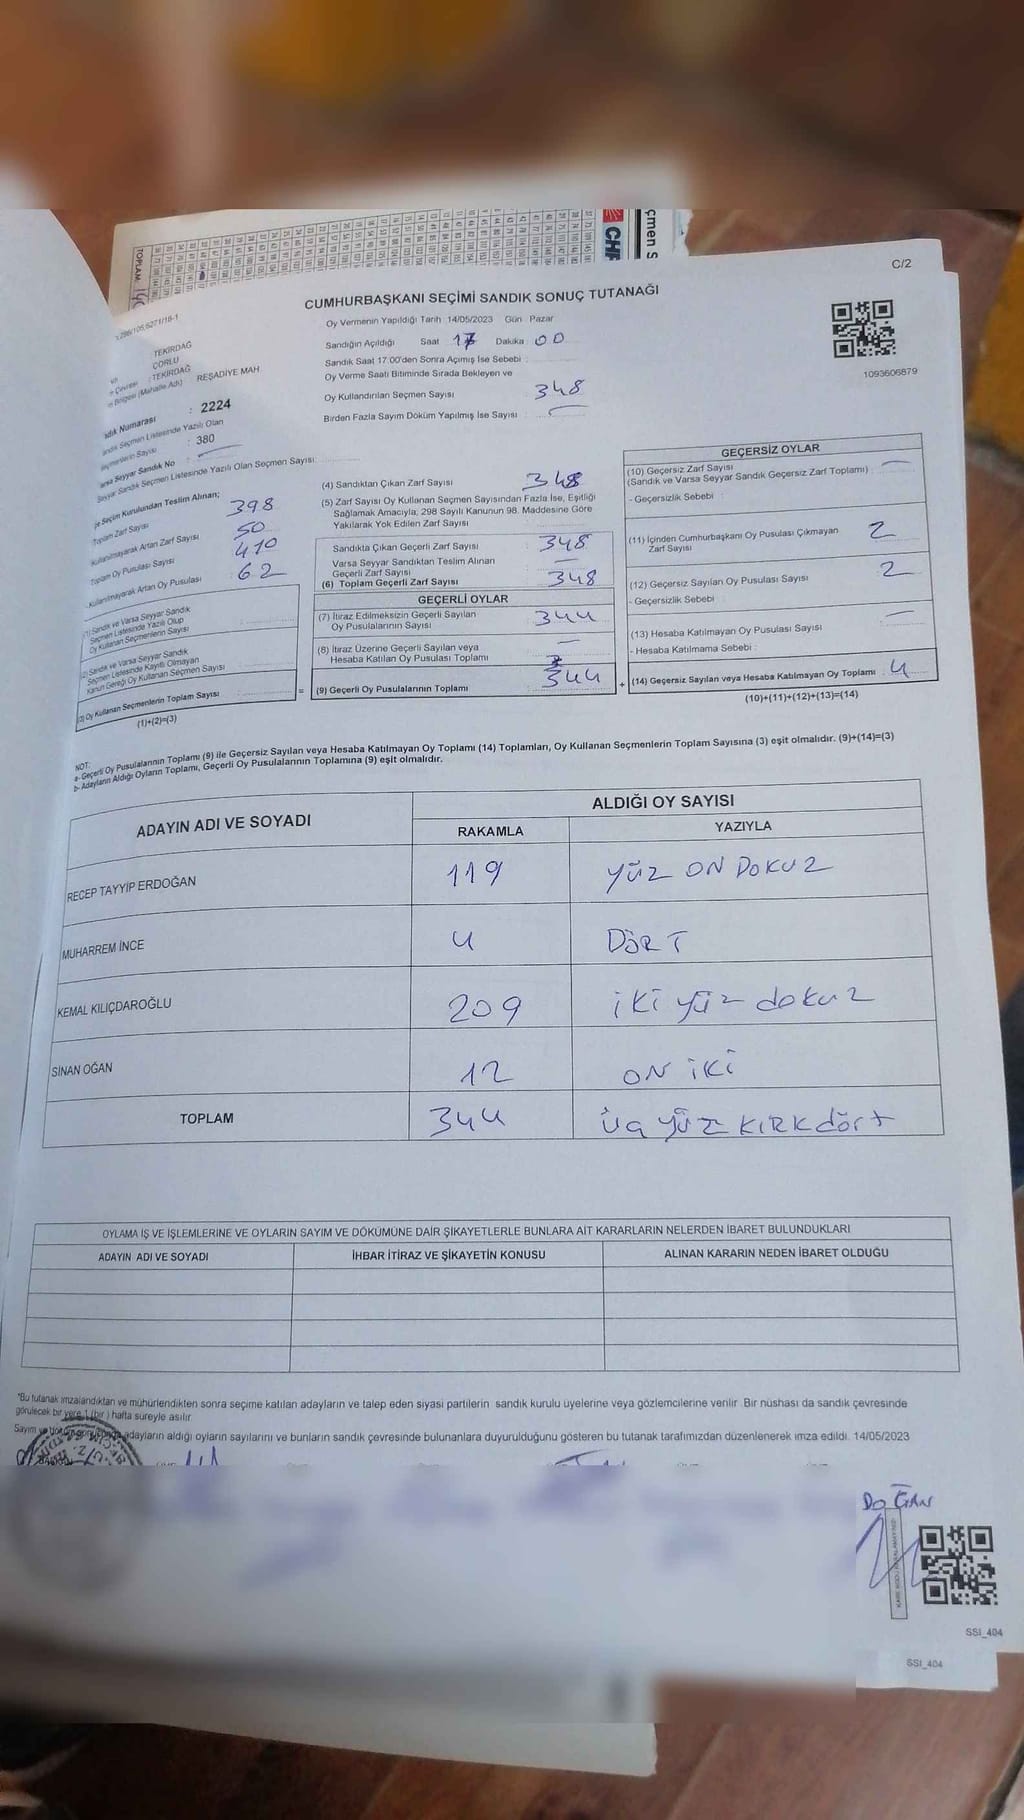 C/2
CUMHURBAŞKANI SEÇİMİ SANDIK SONUÇ TUTANAĞI
Oy Vermenin Yapıldığı Tarih :14/05/2023 Gün : Pazar
Sandığın Açıldığı Saat 17 Dakika : 00
Sandık Saat 17:00'den Sonra Açımış İse Sebebi :
Oy Verme Saati Bitiminde Sırada Bekleyen ve
Oy Kullandırılan Seçmen Sayısı : 348
Birden Fazla Sayım Döküm Yapılmış İse Sayısı :
1093606879
CHP
çmen S
TOPLAM
TEKİRDAĞ
ÇORLU
: TEKİRDAĞ
Bölgesi (Mahalle Adı) : REŞADİYE MAH.
dık Numarası : 2224
andık Seçmen Listesinde Yazılı Olan
Seçmenlerin Sayısı : 380
arsa Seyyar Sandık No :
Seyyar Sandık Seçmen Listesinde Yazılı Olan Seçmen Sayısı:
çe Seçim Kurulundan Teslim Alınan;
Toplam Zarf Sayısı 398
Kullanılmayarak Artan Zarf Sayısı 50
Toplam Oy Pusulası Sayısı 410
- Kullanılmayarak Artan Oy Pusulası 62
(1) Sandık ve Varsa Seyyar Sandık
Seçmen Listesinde Yazılı Olup
Oy Kullanan Seçmenlerin Sayısı
(2) Sandık ve Varsa Seyyar Sandık
Seçmen Listesinde Kayıtlı Olmayan
Kanun Gereği Oy Kullanan Seçmen Sayısı
(3) Oy Kullanan Seçmenlerin Toplam Sayısı
(1)+(2)=(3)
=
(4) Sandıktan Çıkan Zarf Sayısı : 348
(5) Zarf Sayısı Oy Kullanan Seçmen Sayısından Fazla İse, Eşitliği
Sağlamak Amacıyla; 298 Sayılı Kanunun 98. Maddesine Göre
Yakılarak Yok Edilen Zarf Sayısı
Sandıkta Çıkan Geçerli Zarf Sayısı 348
Varsa Seyyar Sandıktan Teslim Alınan
Geçerli Zarf Sayısı
(6) Toplam Geçerli Zarf Sayısı 348
GEÇERLİ OYLAR
(7) İtiraz Edilmeksizin Geçerli Sayılan
Oy Pusulalarının Sayısı : 344
(8) İtiraz Üzerine Geçerli Sayılan veya
Hesaba Katılan Oy Pusulası Toplamı
(9) Geçerli Oy Pusulalarının Toplamı 344
+
GEÇERSİZ OYLAR
(10) Geçersiz Zarf Sayısı
(Sandık ve Varsa Seyyar Sandık Geçersiz Zarf Toplamı) :
- Geçersizlik Sebebi :
(11) İçinden Cumhurbaşkanı Oy Pusulası Çıkmayan
Zarf Sayısı 2
(12) Geçersiz Sayılan Oy Pusulası Sayısı : 2
- Geçersizlik Sebebi :
(13) Hesaba Katılmayan Oy Pusulası Sayısı :
- Hesaba Katılmama Sebebi :
(14) Geçersiz Sayılan veya Hesaba Katılmayan Oy Toplamı : 4
(10)+(11)+(12)+(13)=(14)
NOT:
a- Geçerli Oy Pusulalarının Toplamı (9) ile Geçersiz Sayılan veya Hesaba Katılmayan Oy Toplamı (14) Toplamları, Oy Kullanan Seçmenlerin Toplam Sayısına (3) eşit olmalıdır. (9)+(14)=(3)
b- Adayların Aldığı Oyların Toplamı, Geçerli Oy Pusulalarının Toplamına (9) eşit olmalıdır.
ADAYIN ADI VE SOYADI
ALDIĞI OY SAYISI
RAKAMLA YAZIYLA
RECEP TAYYİP ERDOĞAN 119 yüz ON DOKUZ
MUHARREM İNCE 4 DÖRT
KEMAL KILIÇDAROĞLU 209 iki yüz dokuz
SİNAN OĞAN 12 ON iKİ
TOPLAM 344 üç yüz KIRK dört
OYLAMA İŞ VE İŞLEMLERİNE VE OYLARIN SAYIM VE DÖKÜMÜNE DAİR ŞİKAYETLERLE BUNLARA AİT KARARLARIN NELERDEN İBARET BULUNDUKLARI
ADAYIN ADI VE SOYADI İHBAR İTİRAZ VE ŞİKAYETİN KONUSU ALINAN KARARIN NEDEN İBARET OLDUĞU
*Bu tutanak imzalandıktan ve mühürlendikten sonra seçime katılan adayların ve talep eden siyasi partilerin sandık kurulu üyelerine veya gözlemcilerine verilir. Bir nüshası da sandık çevresinde
görülecek bir yere 1 (bir ) hafta süreyle asılır.
Sayım ve adayların aldığı oyların sayılarını ve bunların sandık çevresinde bulunanlara duyurulduğunu gösteren bu tutanak tarafımızdan düzenlenerek imza edildi. 14/05/2023
DOĞAN
SSI_404
SSI_404